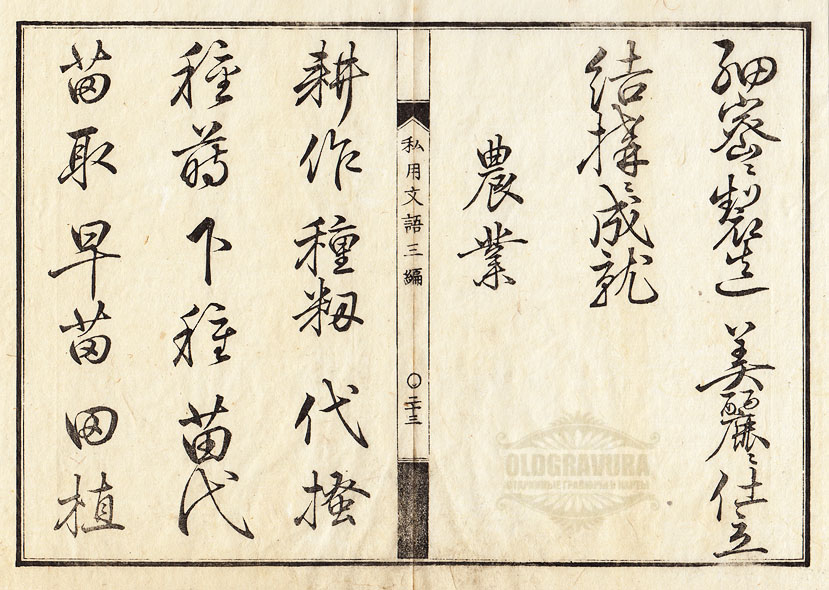 細密ニ製造 美麗ニ仕立
結構ニ成就
農業
私用文語三編
〇二十三
耕作 種籾 代掻
種蒔 下種 苗代
苗取 早苗 田植
OLDGRAVURA
СТАРИННЫЕ ГРАВЮРЫ И КАРТЫ